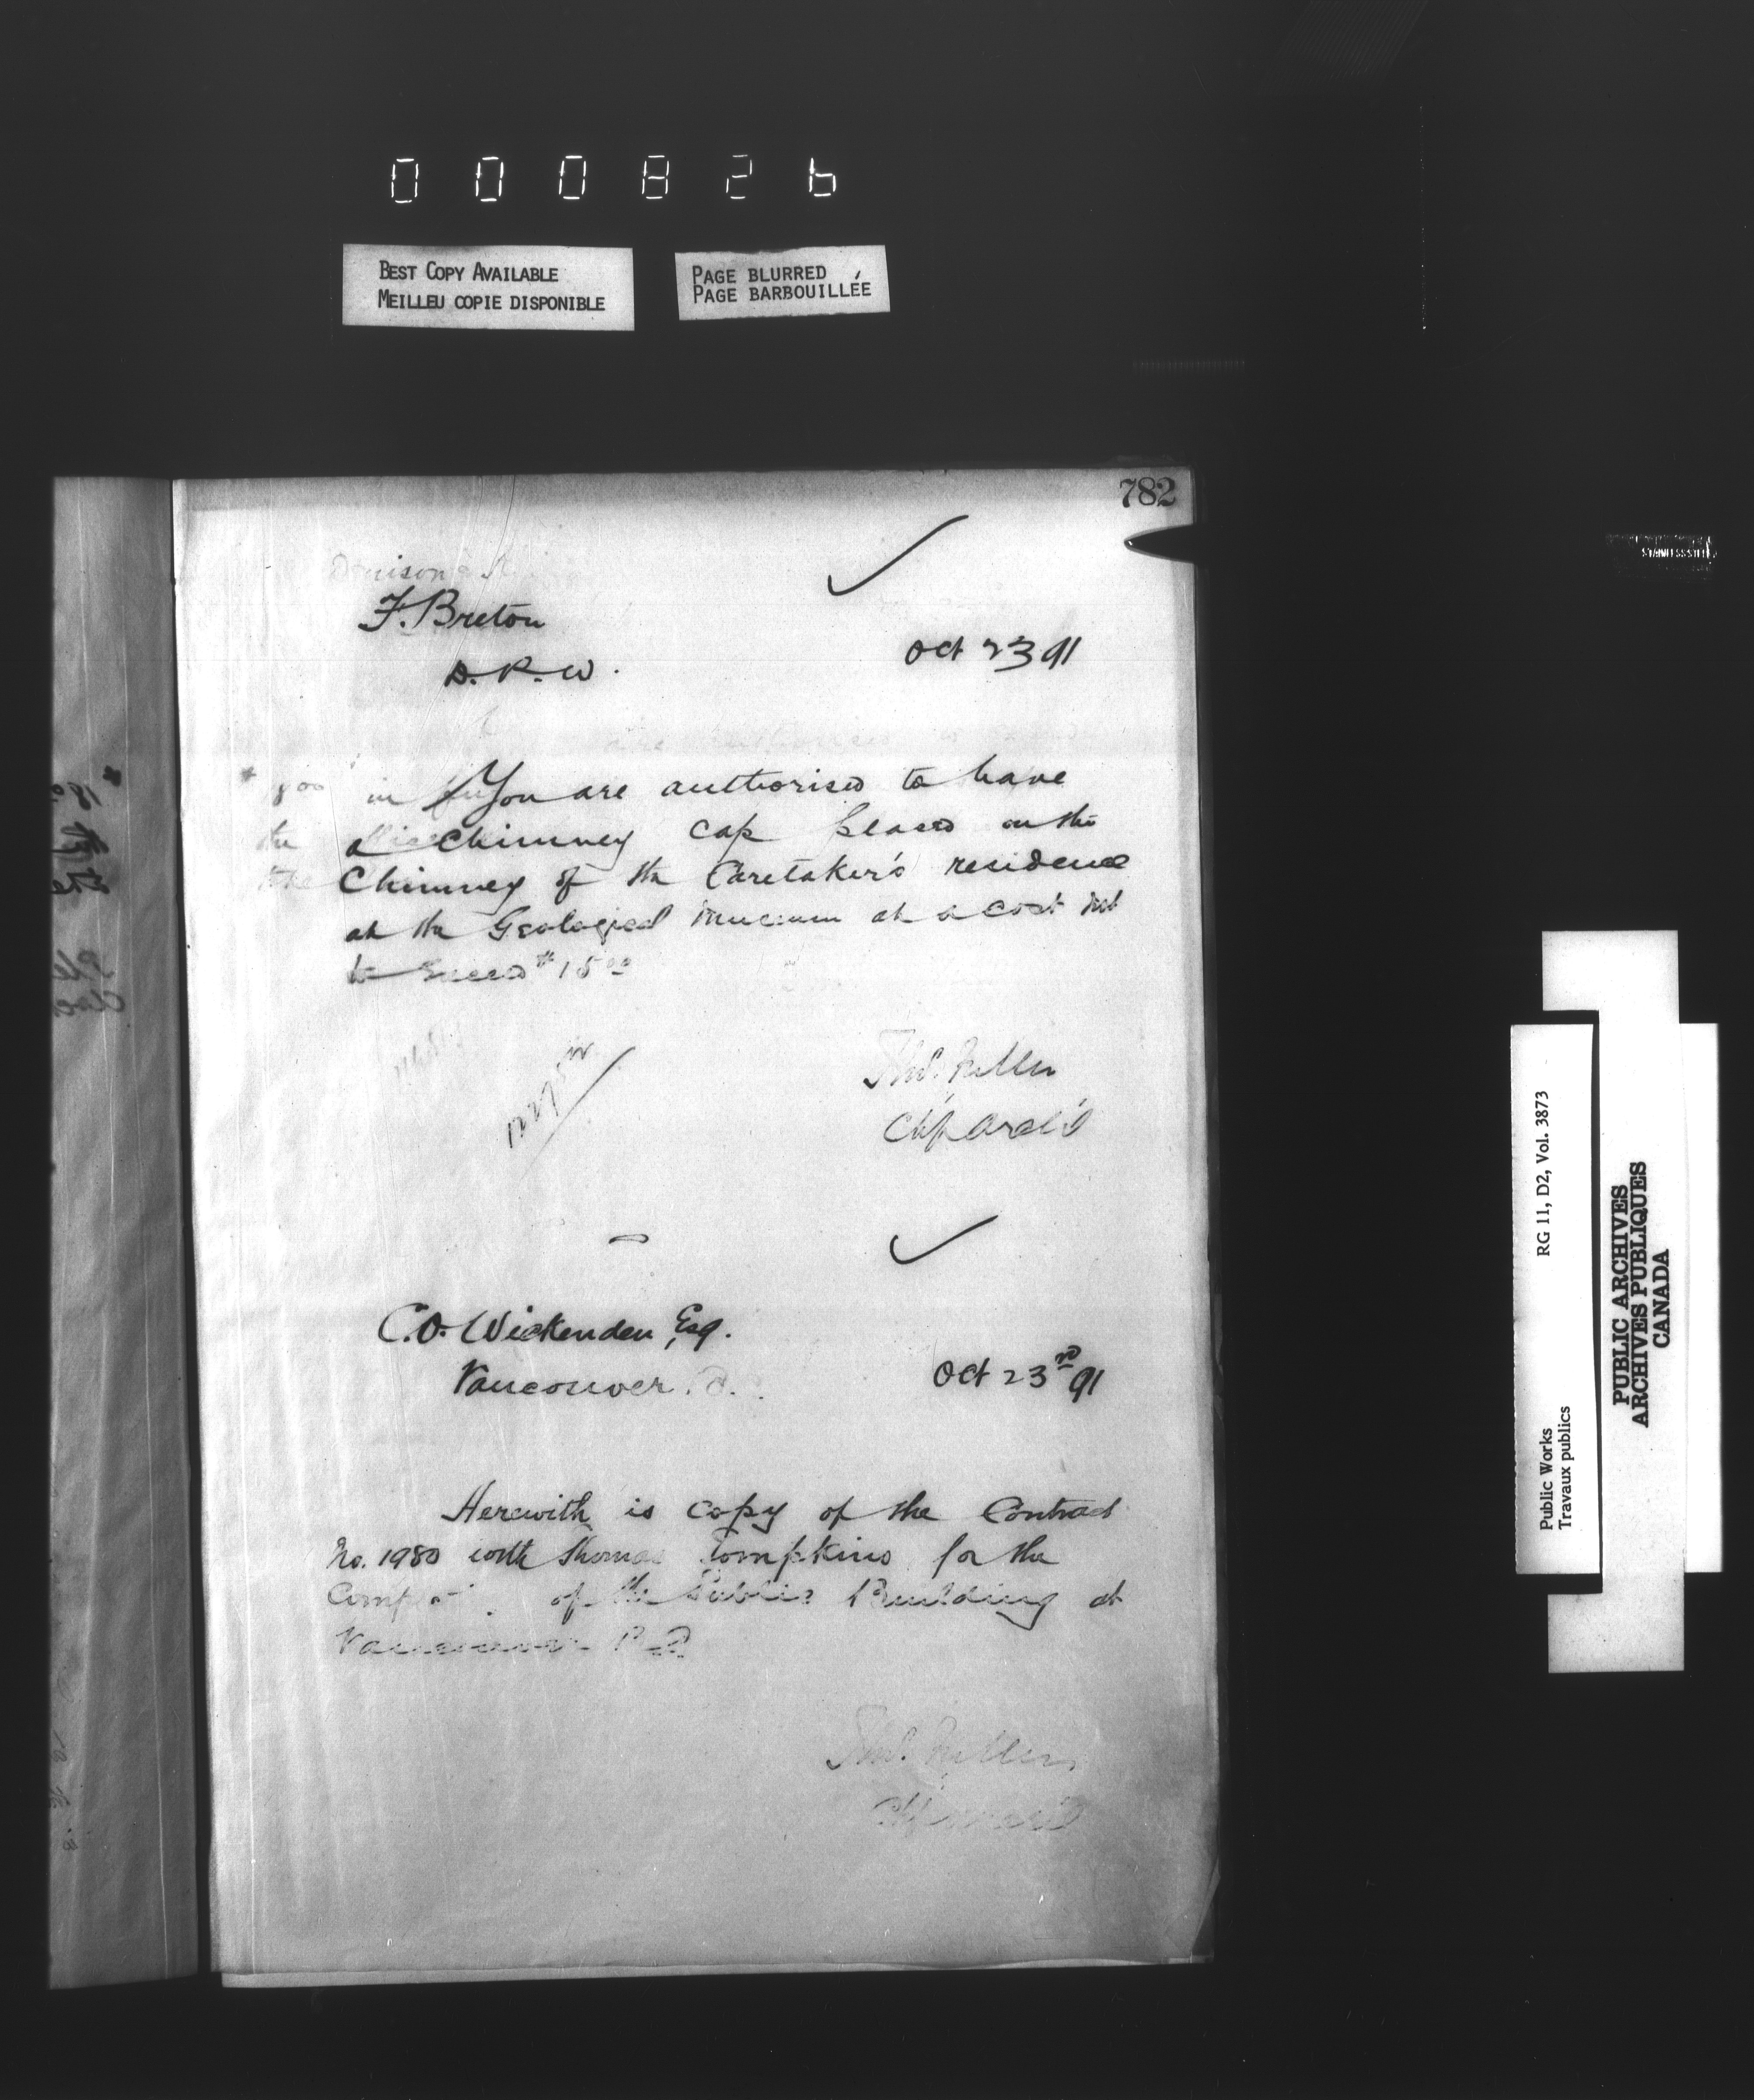 000826
BEST COPY AVAILABLE
MEILLEU COPIE DISPONIBLE
PAGE BLURRED
PAGE BARBOUILLÉE
782
F. Breton
D.P.W.
Oct 23 91
You are authorised to have
a Chimney cap placed on the
Chimney of the Caretaker's residence
at the Geological Museum at a cost not
to exceed $15 00
Thos. Fuller
Chf Arch't
C.O. Wickenden, Esq.
Vancouver
Oct 23rd 91
Herewith is copy of the Contract
No. 1980 with Thomas Tompkins for the
of the Public Building at
Vancouver B.C.
Thos. Fuller
STAINLESS STEEL
Public Works
Travaux publics
RG 11, D2, Vol. 3873
PUBLIC ARCHIVES
ARCHIVES PUBLIQUES
CANADA